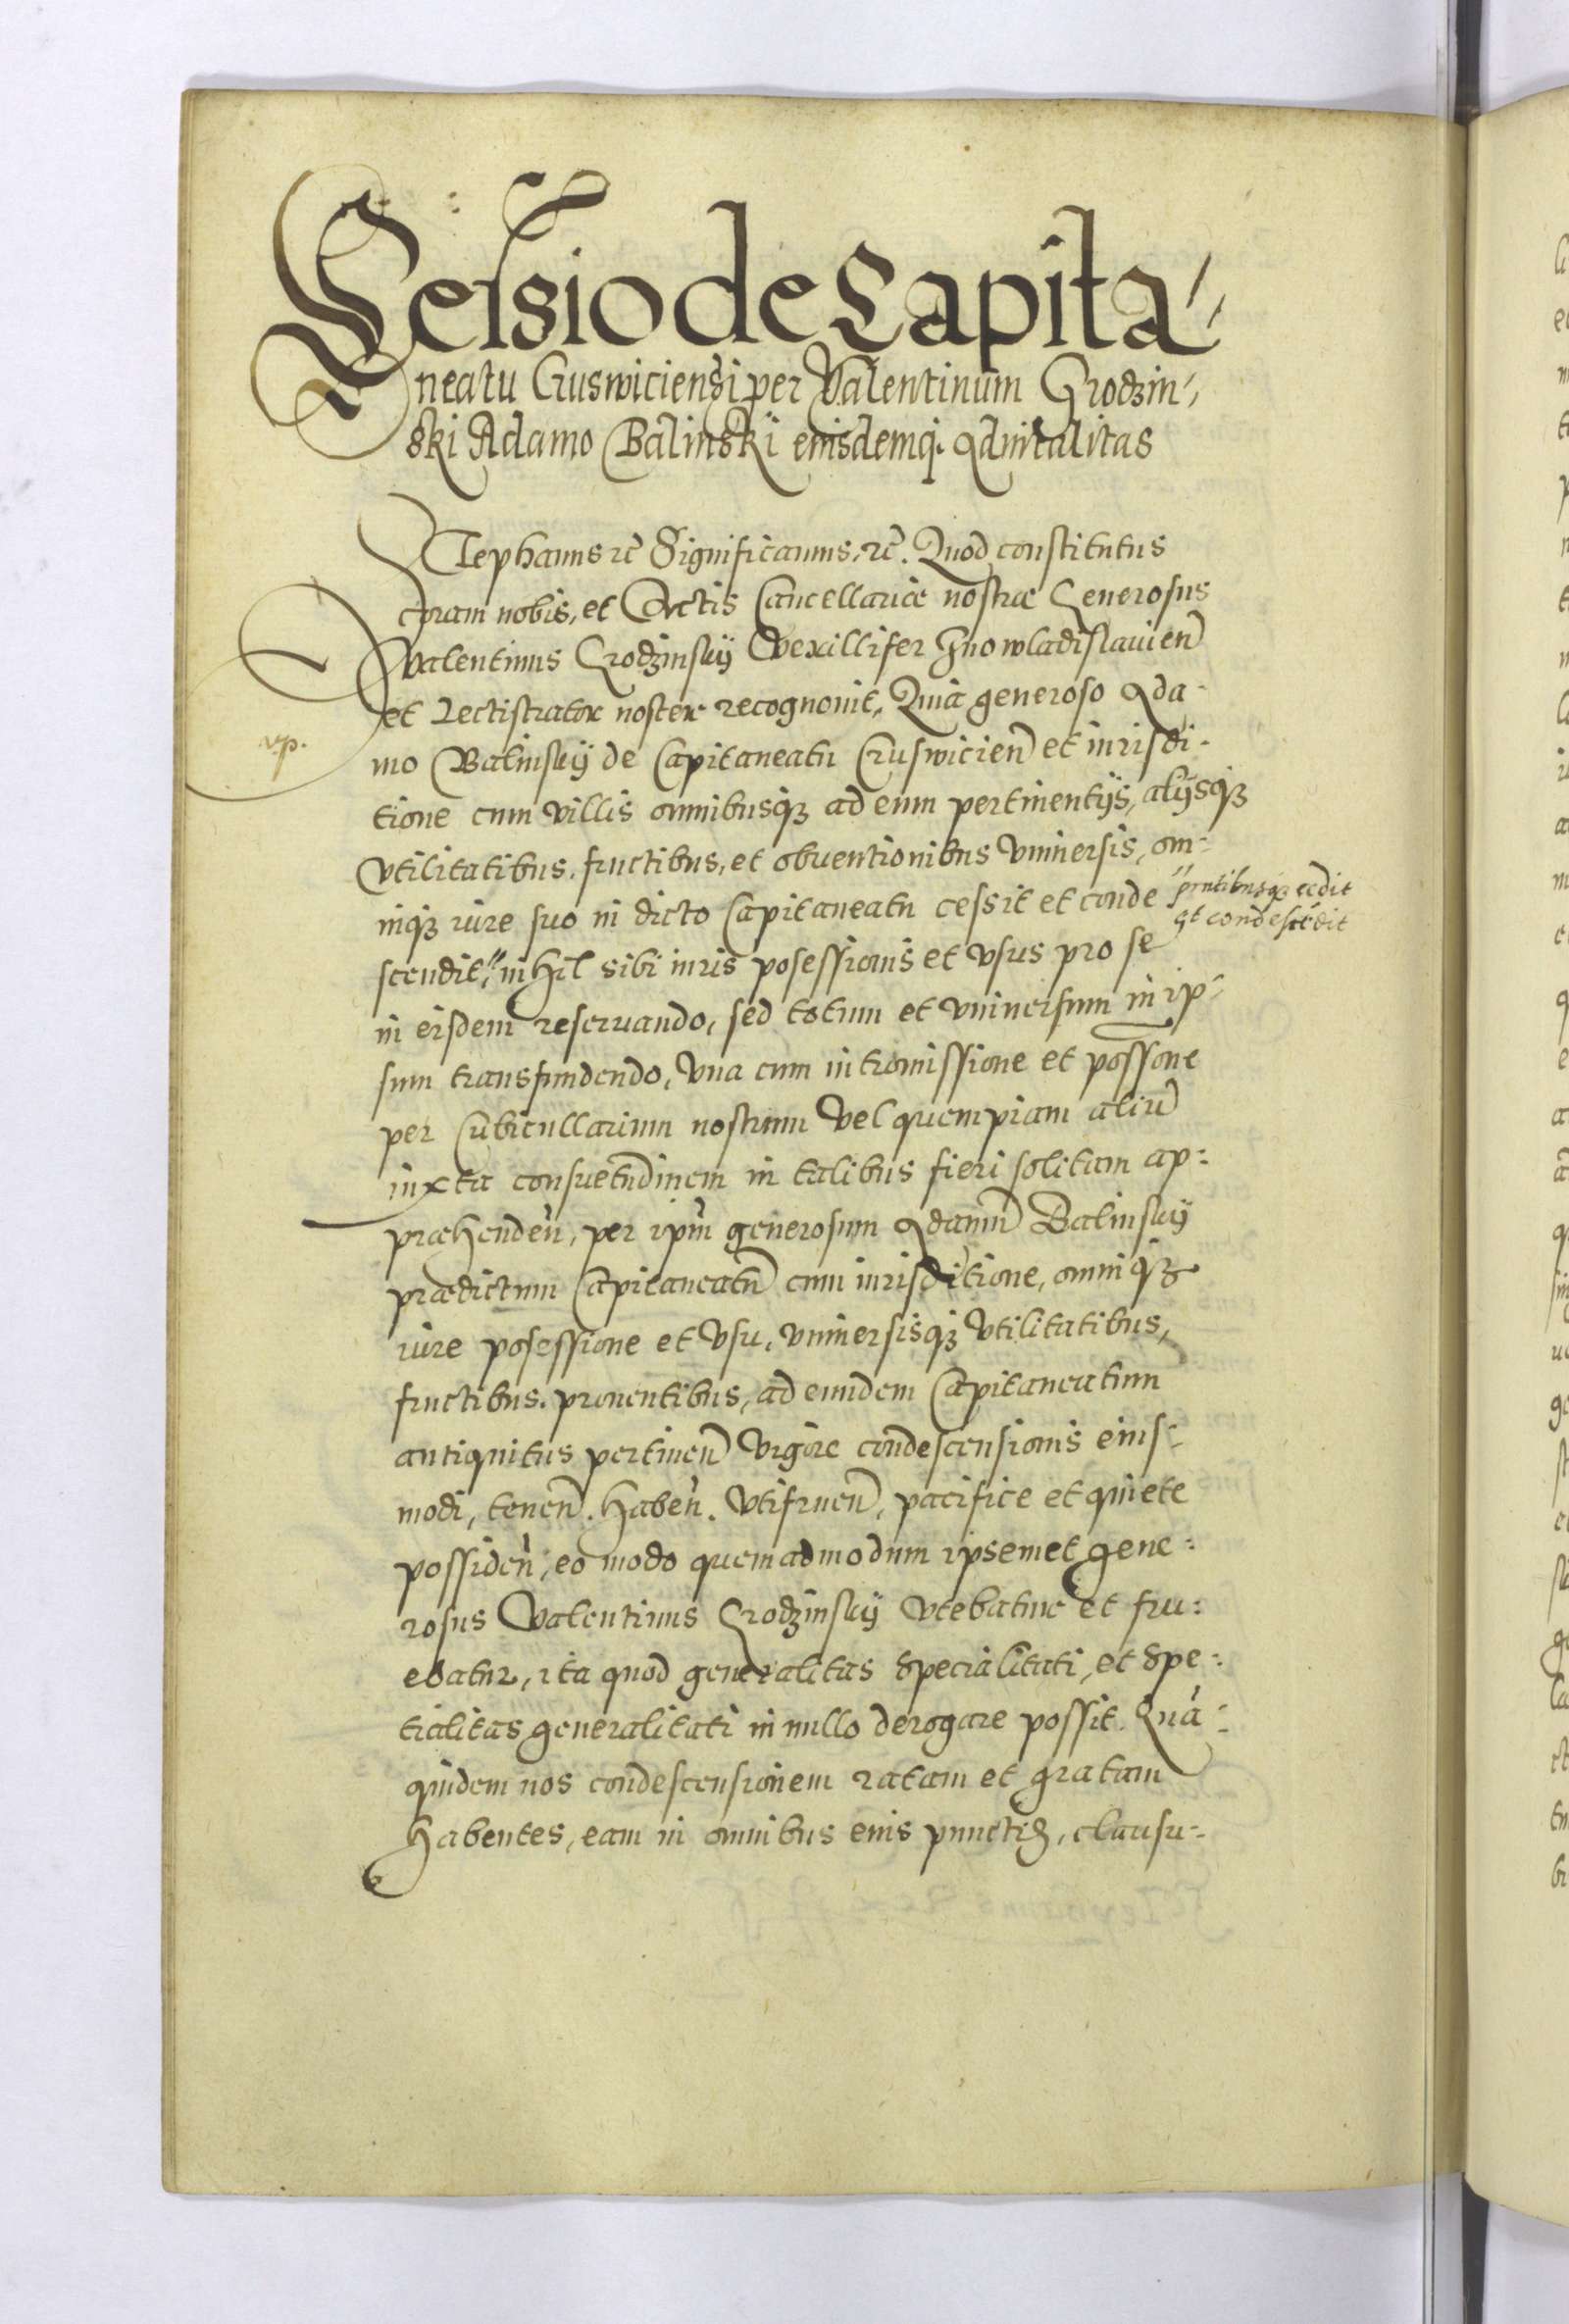 Cessio de Capita-
neatu Cruswiciensi per Valentinum Grodzin-
ski Adamo Balinski eiusdemq. advitalitas
Stephanus rc̄ Significamus, rc̄. Quod constitutus
coram nobis, et Actis Cancellariæ nostræ Generosus
Valentinus Grodzinskij Vexillifer Inowladislavien̄
et Regestrator noster recognovit, Quia generoso Ada-
mo Balinskij de Capitaneatu Cruswicien̄ et iurisdi-
tione cum villis omnibusqꝫ ad eum pertinentijs, alijsqꝫ
utilitatibus, fructibus, et obventionibus universis, om-
niqꝫ iure suo in dicto Capitaneatu cessit et conde
prntibusqꝫ cedit
et condescēdit
scendit, nihil sibi iuris posessionis et usus pro se
in eisdem reservando, sed totum et universum in ip-
sum transfundendo, una cum intromissione et possone
per Cubicullarium nostrum vel quempiam aliū
iuxta consuetudinem in talibus fieri solitam ap-
præhenden̄, per ipm̄ generosum Adamū Balinskij
prædictum Capitaneatū cum iurisditione, omniqꝫ
iure posessione et usu, universisqꝫ utilitatibus,
fructibus, proventibus, ad eundem Capitaneatum
antiquitus pertinen̄ vigore condescensionis eius-
modi, tenen̄. haben̄. utifruen̄, pacifice et quiete
possiden̄, eo modo quemadmodum ipsemet gene-
rosus Valentinus Grodzinskij utebatur et fru-
ebatur, ita quod generalitas specialitati, et spe-
tialitas generalitati in nullo derogare possit. Quā-
quidem nos condescensionem ratam et gratam
habentes, eam in omnibus eius punctis, clausu-